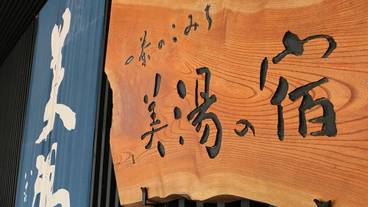 味のこみち
美湯の宿
美湯